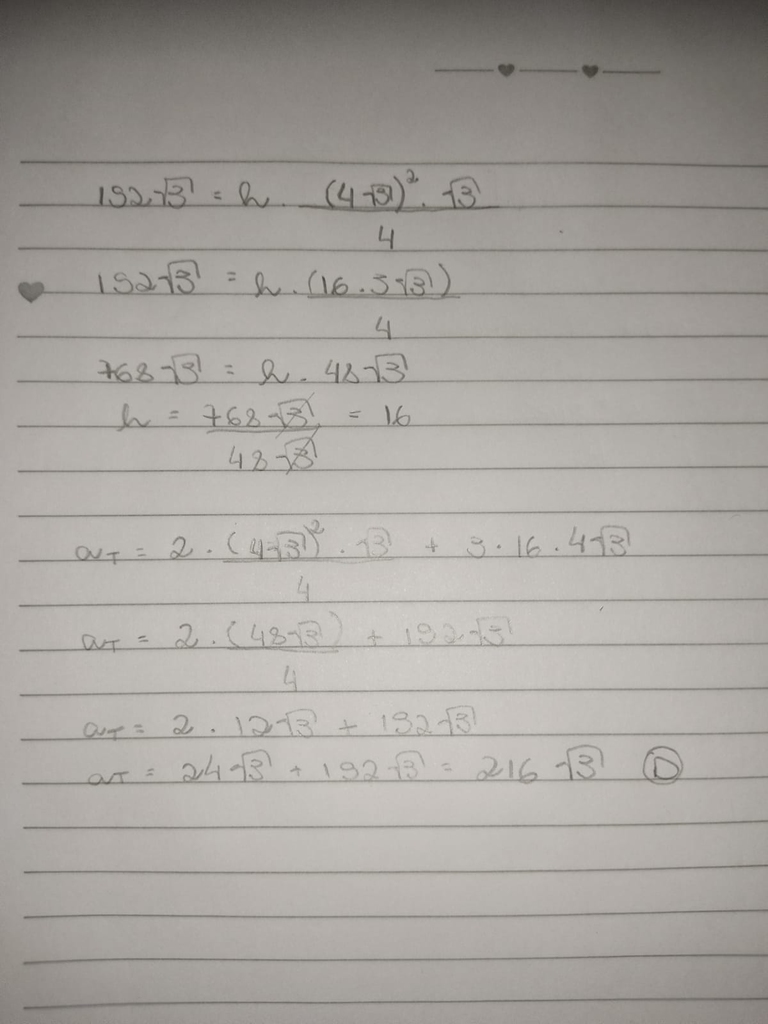 192√3 = h . (4√3)² . √3
4
192√3 = h . (16 . 3√3)
4
768√3 = h . 48√3
h = 768√3 = 16
48√3
aT = 2 . (4√3)² . √3 + 3 . 16 . 4√3
4
aT = 2 . (48√3) + 192√3
4
aT = 2 . 12√3 + 192√3
aT = 24√3 + 192√3 = 216√3 D